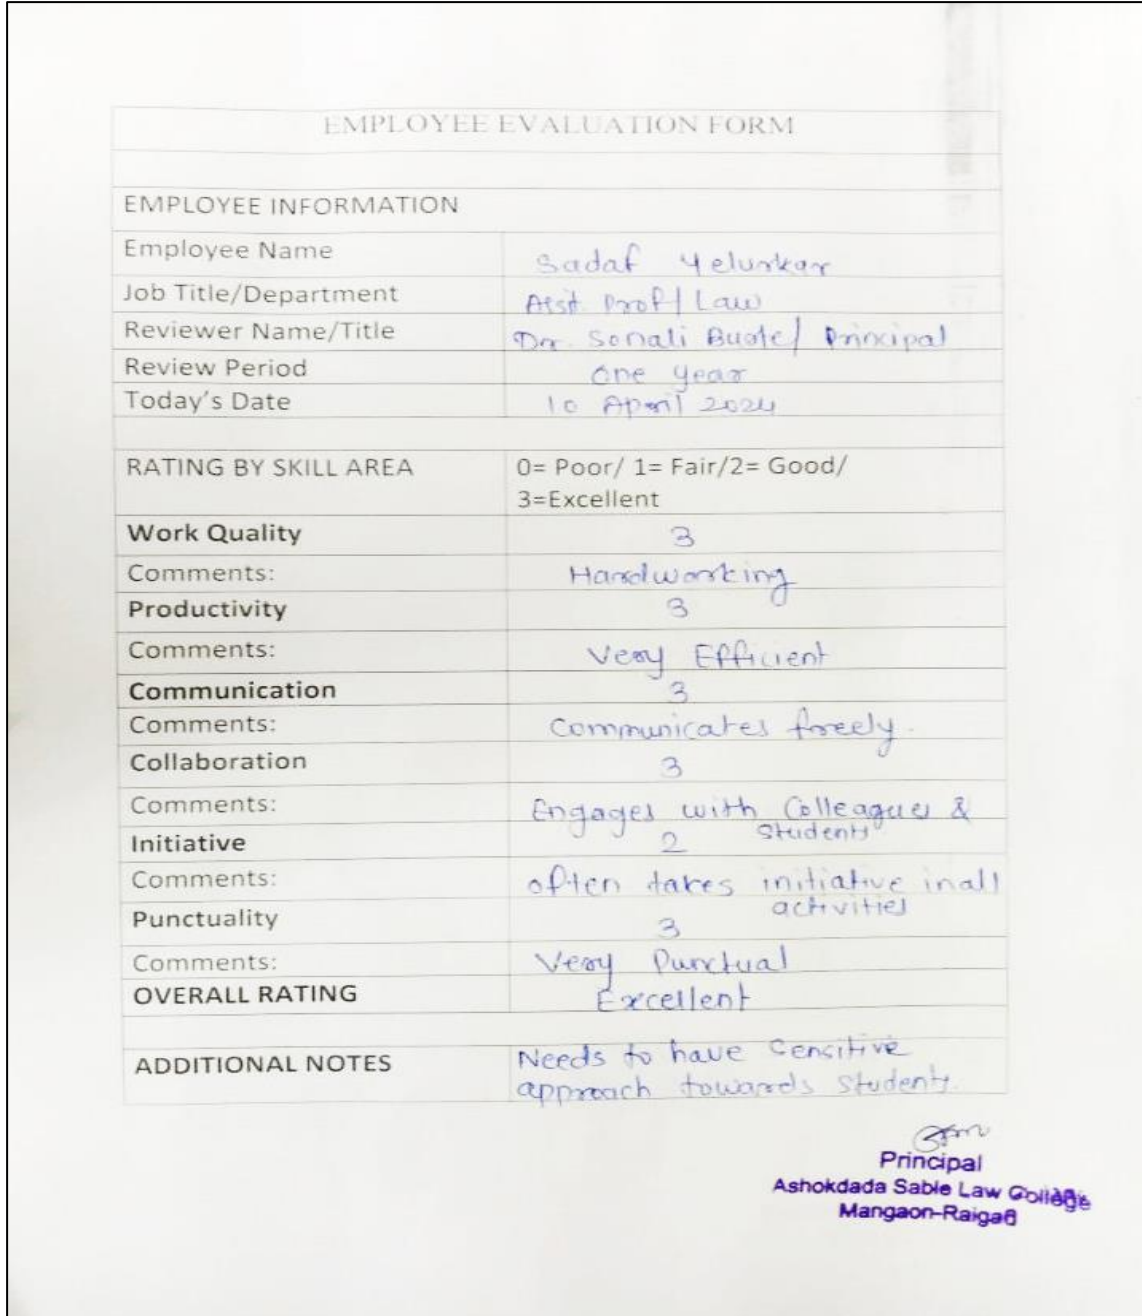 EMPLOYEE EVALUATION FORM
EMPLOYEE INFORMATION
Employee Name Sadaf Yelurkar
Job Title/Department Asst. Prof/ Law
Reviewer Name/Title Dr. Sonali Buote/ Principal
Review Period One Year
Today's Date 10 April 2024
RATING BY SKILL AREA 0= Poor/ 1= Fair/2= Good/
3=Excellent
Work Quality 3
Comments: Hardworking
Productivity 3
Comments: Very Efficient
Communication 3
Comments: Communicates freely.
Collaboration 3
Comments: Engages with Colleagues &
Students
Initiative 2
Comments: often takes initiative in all
activities
Punctuality 3
Comments: Very Punctual
OVERALL RATING Excellent
ADDITIONAL NOTES Needs to have Sensitive
approach towards Students.
Principal
Ashokdada Sable Law College
Mangaon-Raigad